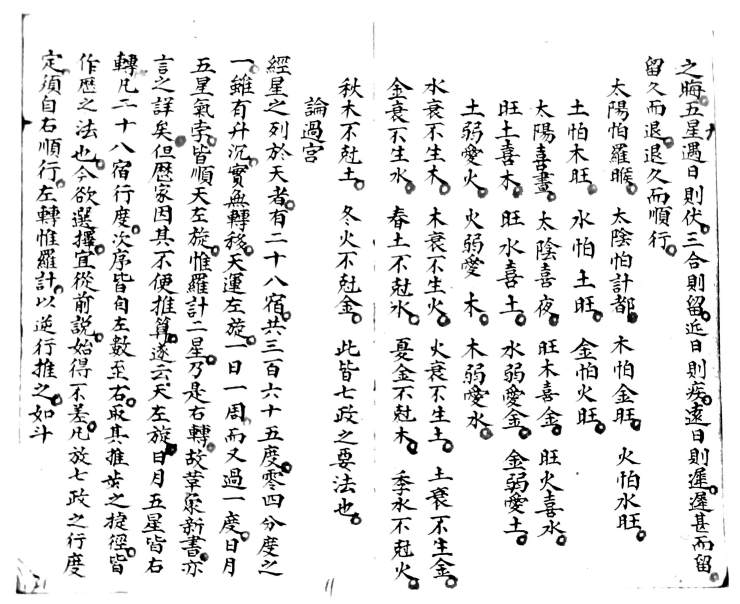 之晦五星遇日則伏三合則留近日則疾遠日則遲遲甚而留
留久而退退久而順行
太陽怕羅睺 太陰怕計都 木怕金旺 火怕水旺
土怕木旺 水怕土旺 金怕火旺
太陽喜晝 太陰喜夜 旺木喜金 旺火喜水
旺土喜木 旺水喜土 水弱愛金 金弱愛土
土弱愛火 火弱愛木 木弱愛水
水衰不生木 木衰不生火 火衰不生土 土衰不生金
金衰不生水 春土不尅水 夏金不尅木 季水不尅火
秋木不尅土 冬火不尅金 此皆七政之要法也
論過宮
經星之列於天者有二十八宿共三百六十五度零四分度之
一雖有升沉實無轉移天運左旋一日一周而又過一度日月
五星氣孛皆順天左旋惟羅計二星乃是右轉故革象新書亦
言之詳矣但歷家因其不便推算遂云天左旋日月五星皆右
轉凡二十八宿行度次序皆自左數至右取其推步之捷徑皆
作歷之法也今欲選擇宜從前說始得不差凡放七政之行度
定須自右順行左轉惟羅計以逆行推之如斗
11